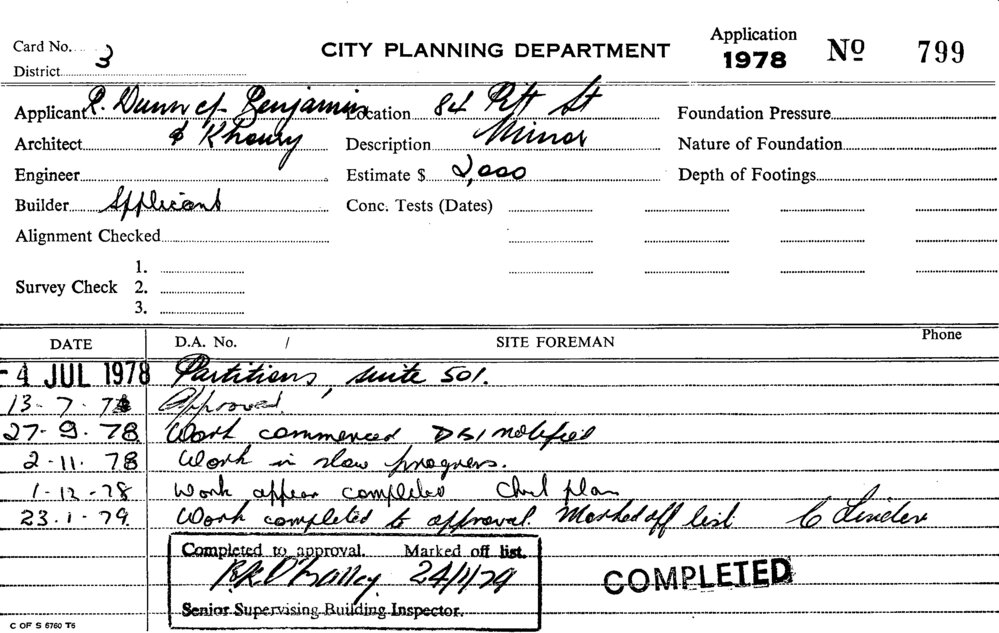 Card No. 3
CITY PLANNING DEPARTMENT
Application
1978 No 799
District
Applicant R. Dunn of Benjamin Location 84 Pitt St Foundation Pressure
Architect & Khoury Description Minor Nature of Foundation
Engineer Estimate $ 2,000 Depth of Footings
Builder Applicant Conc. Tests (Dates)
Alignment Checked
1.
Survey Check 2.
3.
DATE D.A. No. / SITE FOREMAN Phone
- 4 JUL 1978 Partitions, suite 501.
13-7-78 Approved.
27-9-78 Work commenced DBI notified
2-11-78 Work in slow progress.
1-12-78 Work appear completed Chek plan
23.1.79. Work completed to approval. Marked off list C Linden
Completed to approval. Marked off list.
24/1/79
COMPLETED
Senior Supervising Building Inspector.
C OF S 5760 T5